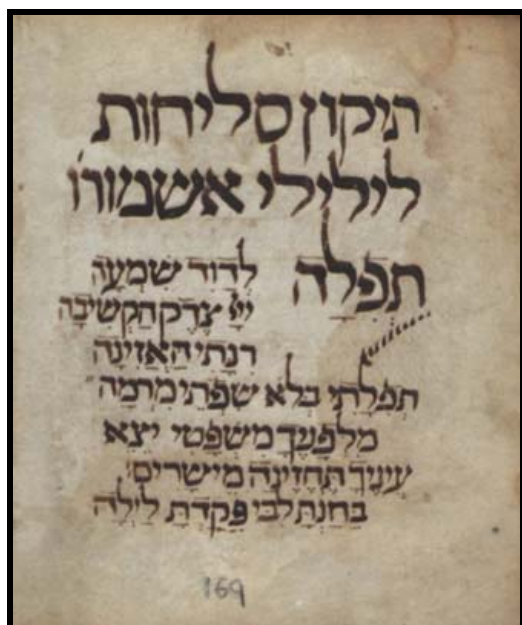 תיקון סליחות
לילילי אשמורו
תפלה לדוד שמעה
ייָ צדק הקשיבה
רנתי האזינה
תפלתי בלא שפתי מרמה
מלפנך משפטי יצא
עיניך תחזינה מישרים
בחנת לבי פקדת לילה
169